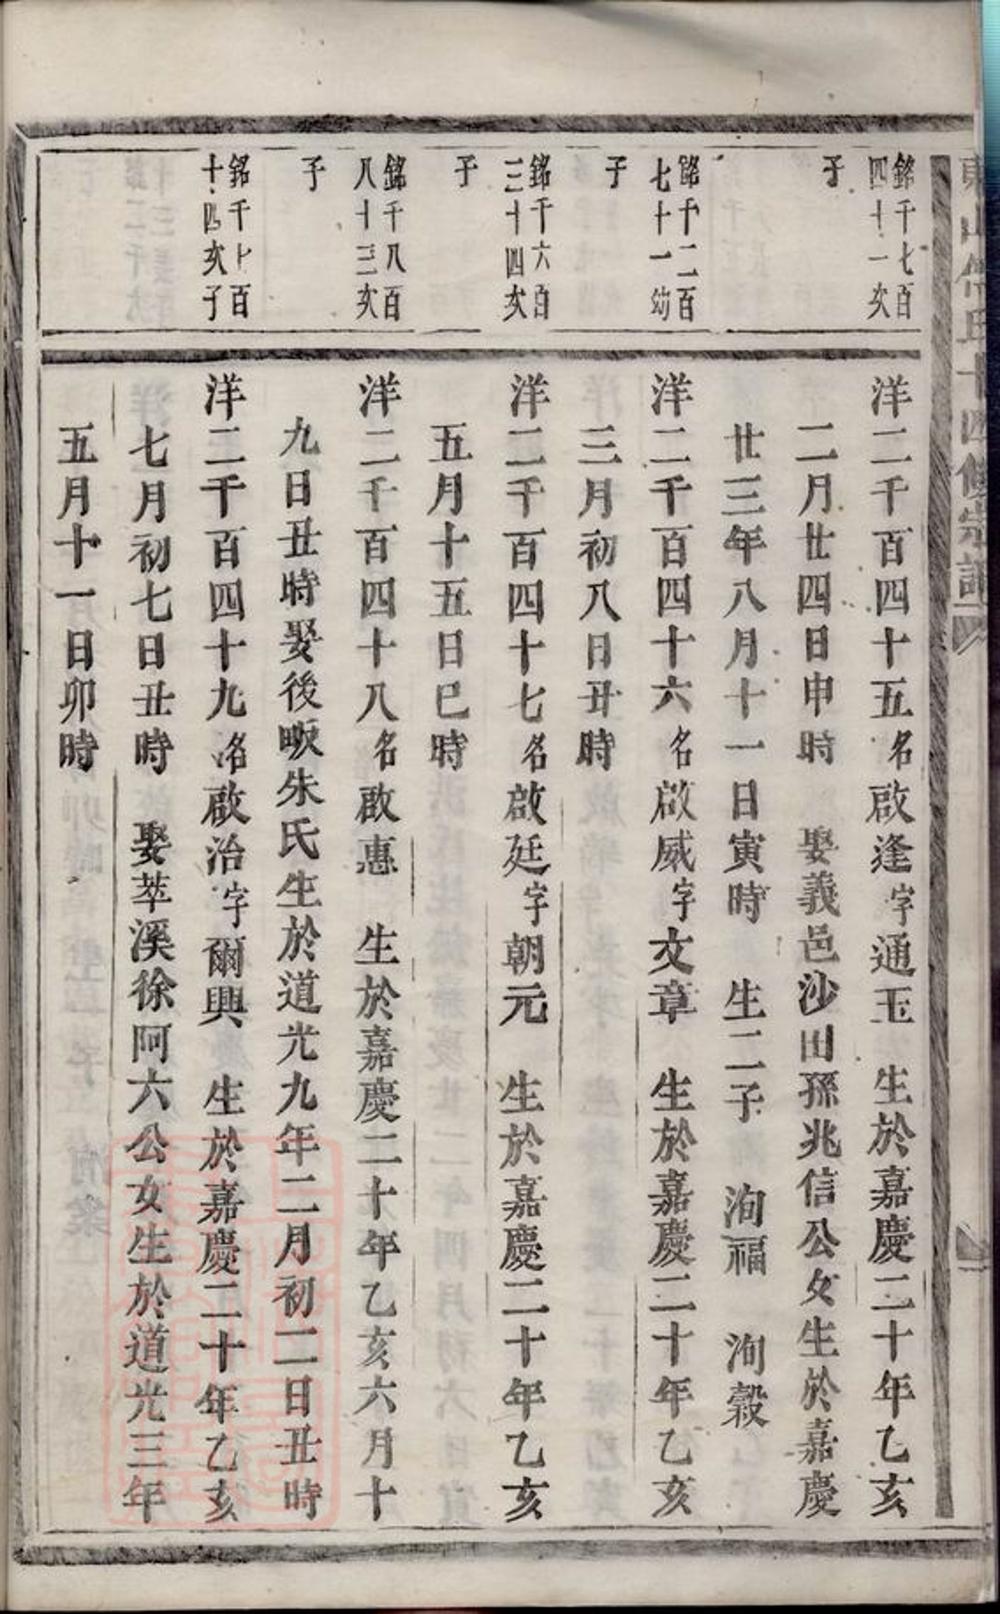 銘千七百
四十一次
子
洋二千百四十五名啟逢字通玉 生於嘉慶二十年乙亥
二月廿四日申時 娶義邑沙田孫兆信公女生於嘉慶
廿三年八月十一日寅時 生二子 洵福 洵穀
銘千二百
七十一幼
子
洋二千百四十六名啟威字文章 生於嘉慶二十年乙亥
三月初八日丑時
銘千六百
三十四次
子
洋二千百四十七名啟廷字朝元 生於嘉慶二十年乙亥
五月十五日巳時
銘千八百
八十三次
子
洋二千百四十八名啟惠 生於嘉慶二十年乙亥六月十
九日丑時娶後畈朱氏生於道光九年二月初二日丑時
銘千七百
十四次子
洋二千百四十九名啟治字爾興 生於嘉慶二十年乙亥
七月初七日丑時 娶萃溪徐阿六公女生於道光三年
五月十一日卯時